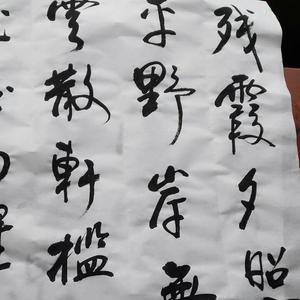 残霞夕照
平野岸無
雲散軒檻